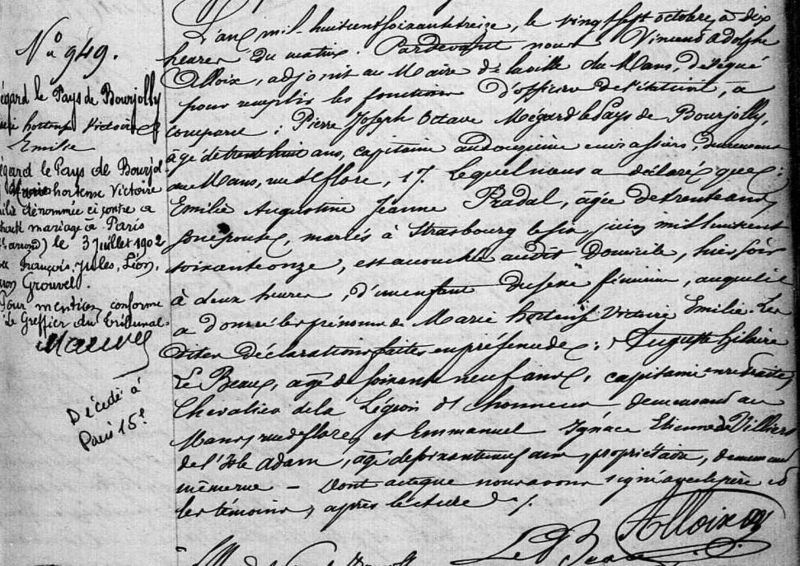 N° 949.
égard le Pays de Bourjolly
hortense Victoire
Emilie
égard le Pays de Bourjol
hortense Victoire
dénommée ci contre a
mariage à Paris
le 3 Juillet 1902
François, Jules, Léon,
Grouvel.
Pour mention conforme
Le Greffier du Tribunal
Décédé à
Paris 15e
L'an mil huit cent soixante treize, le vingt sept octobre, à dix
heures du matin. Pardevant nous Vincent Adolphe
Alloix, adjoint au Maire de la ville du Mans, délégué
pour remplir les fonctions d'officier de l'état civil, a
comparu : Pierre Joseph Octave Mégard le Pays de Bourjolly,
âgé de trente huit ans, capitaine au douzième cuirassiers, demeurant
au Mans, rue de Flore, 17. Lequel nous a déclaré que :
Emilie Augustine Jeanne Pradal, âgée de trente ans,
son épouse, mariés à Strasbourg le six juin mil huit cent
soixante onze, est accouchée audit domicile, hier soir
à deux heures, d'un enfant du sexe féminin, auquel il
a donné les prénoms de Marie hortense Victoire Emilie. Les
dites déclarations faites en présence de : Auguste hilaire
Le Beau, âgé de soixante neuf ans, capitaine en retraite,
Chevalier de la Légion d'honneur demeurant au
Mans, rue de Flore, et Emmanuel Ignace Etienne de Villiers
de l'Isle adam, âgé de soixante neuf ans, propriétaire, demeurant
même rue — Dont acte que nous avons signé avec le père et
les témoins, après lecture ./.
Alloix
Le Beau